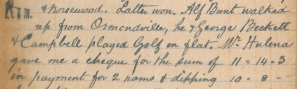 & Norsewood. Latter won. Alf Bunt walked
up from Ormondville, he & George Beckett
& Campbell played Golf on flat. Mr Hulena
gave me a cheque for the sum of 11 - 14 - 3
in payment for 2 rams & dipping 10 - 8 -